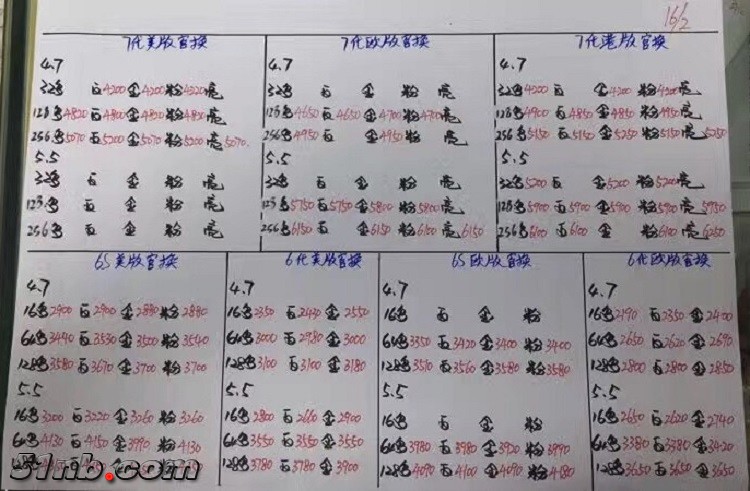 16/2
7代美版官换
4.7
32色 白4200 金4200 粉4320 亮
128色4820 白4800 金4820 粉4820 亮
256色5070 白5200 金5070 粉5200 亮5070
5.5
32色 白 金 粉 亮
128色 白 金 粉 亮
256色 白 金 粉 亮
7代欧版官换
4.7
32色 白 金 粉 亮
128色4650 白4650 金4700 粉4700 亮
256色4950 白 金4950 粉 亮
5.5
32色 白 金 粉 亮
128色5750 白5750 金5800 粉5800 亮
256色6150 白 金6150 粉6100 亮6150
7代港版官换
4.7
32色4200 白 金4200 粉4300 亮
128色4900 白4850 金4850 粉4950 亮
256色5150 白5150 金5250 粉5150 亮5250
5.5
32色5200 白 金5200 粉5200 亮
128色5900 白5900 金5900 粉5900 亮5950
256色6100 白6100 金 粉6100 亮6250
6S美版官换
4.7
16色2900 白2900 金2880 粉2880
64色3440 白3530 金3500 粉3540
128色3580 白3670 金3700 粉3700
5.5
16色3200 白3220 金3260 粉3260
64色4130 白4150 金3990 粉4130
51nb.com
6代美版官换
4.7
16色2350 白2430 金2550
64色3000 白2980 金3000
128色3100 白3100 金3180
5.5
16色2800 白2660 金2900
64色3550 白3550 金3550
128色3780 白3780 金3900
6S欧版官换
4.7
16色 白 金 粉
64色3350 白3420 金3400 粉3400
128色3510 白3560 金3580 粉3580
5.5
16色 白 金 粉
64色3980 白3980 金3920 粉3990
128色4090 白4100 金4090 粉4180
6代欧版官换
4.7
16色2190 白2350 金2400
64色2650 白2620 金2690
128色2800 白2800 金2850
5.5
16色2650 白2620 金2740
64色3380 白3380 金3420
128色3650 白3650 金3650